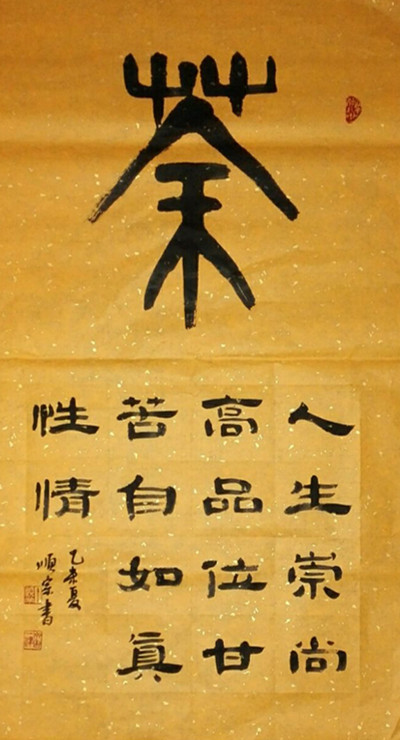 茶
人生崇尚
高品位甘
苦自如真
性情
乙未夏
顺宗书